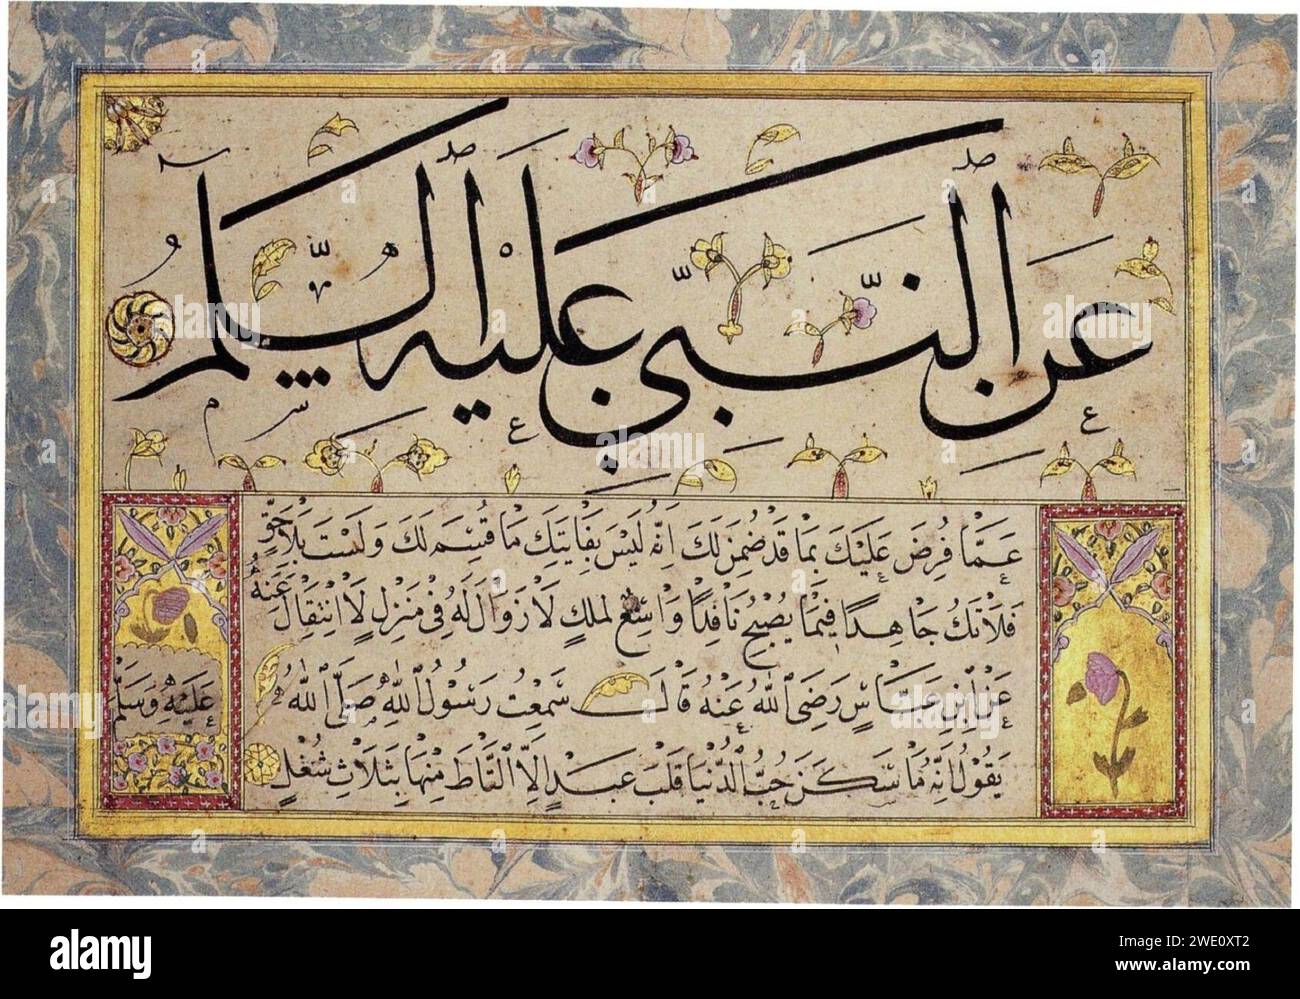 عَنِ النَّبِيِّ عَلَيْهِ السَّلَامُ
عَمَّا فُرِضَ عَلَيْكَ بِمَا قَدْ ضُمِنَ لَكَ اِنَّهُ لَيْسَ بِفَايِتِكَ مَا قُسِمَ لَكَ وَلَسْتَ بِلَاحِقٍ
جَاهِدًا فِيمَا يُصْبِحُ نَافِدًا وَاسْعَ لِمُلْكٍ لَا زَوَالَ لَهُ فِي مَنْزِلٍ لَا انْتِقَالَ عَنْهُ
عَنْ ابْنِ عَبَّاسٍ رَضِيَ اللّٰهُ عَنْهُ قَالَ سَمِعْتُ رَسُولَ اللّٰهِ صَلَّى اللّٰهُ
عَلَيْهِ وَسَلَّمَ
يَقُولُ اِنَّهُ مَا سَكَنَ حُبُّ الدُّنْيَا قَلْبَ عَبْدٍ اِلَّا الْتَاطَ مِنْهَا بِثَلَاثٍ شُغْلٍ
alamy
alamy
Image ID: 2WE0XT2
www.alamy.com